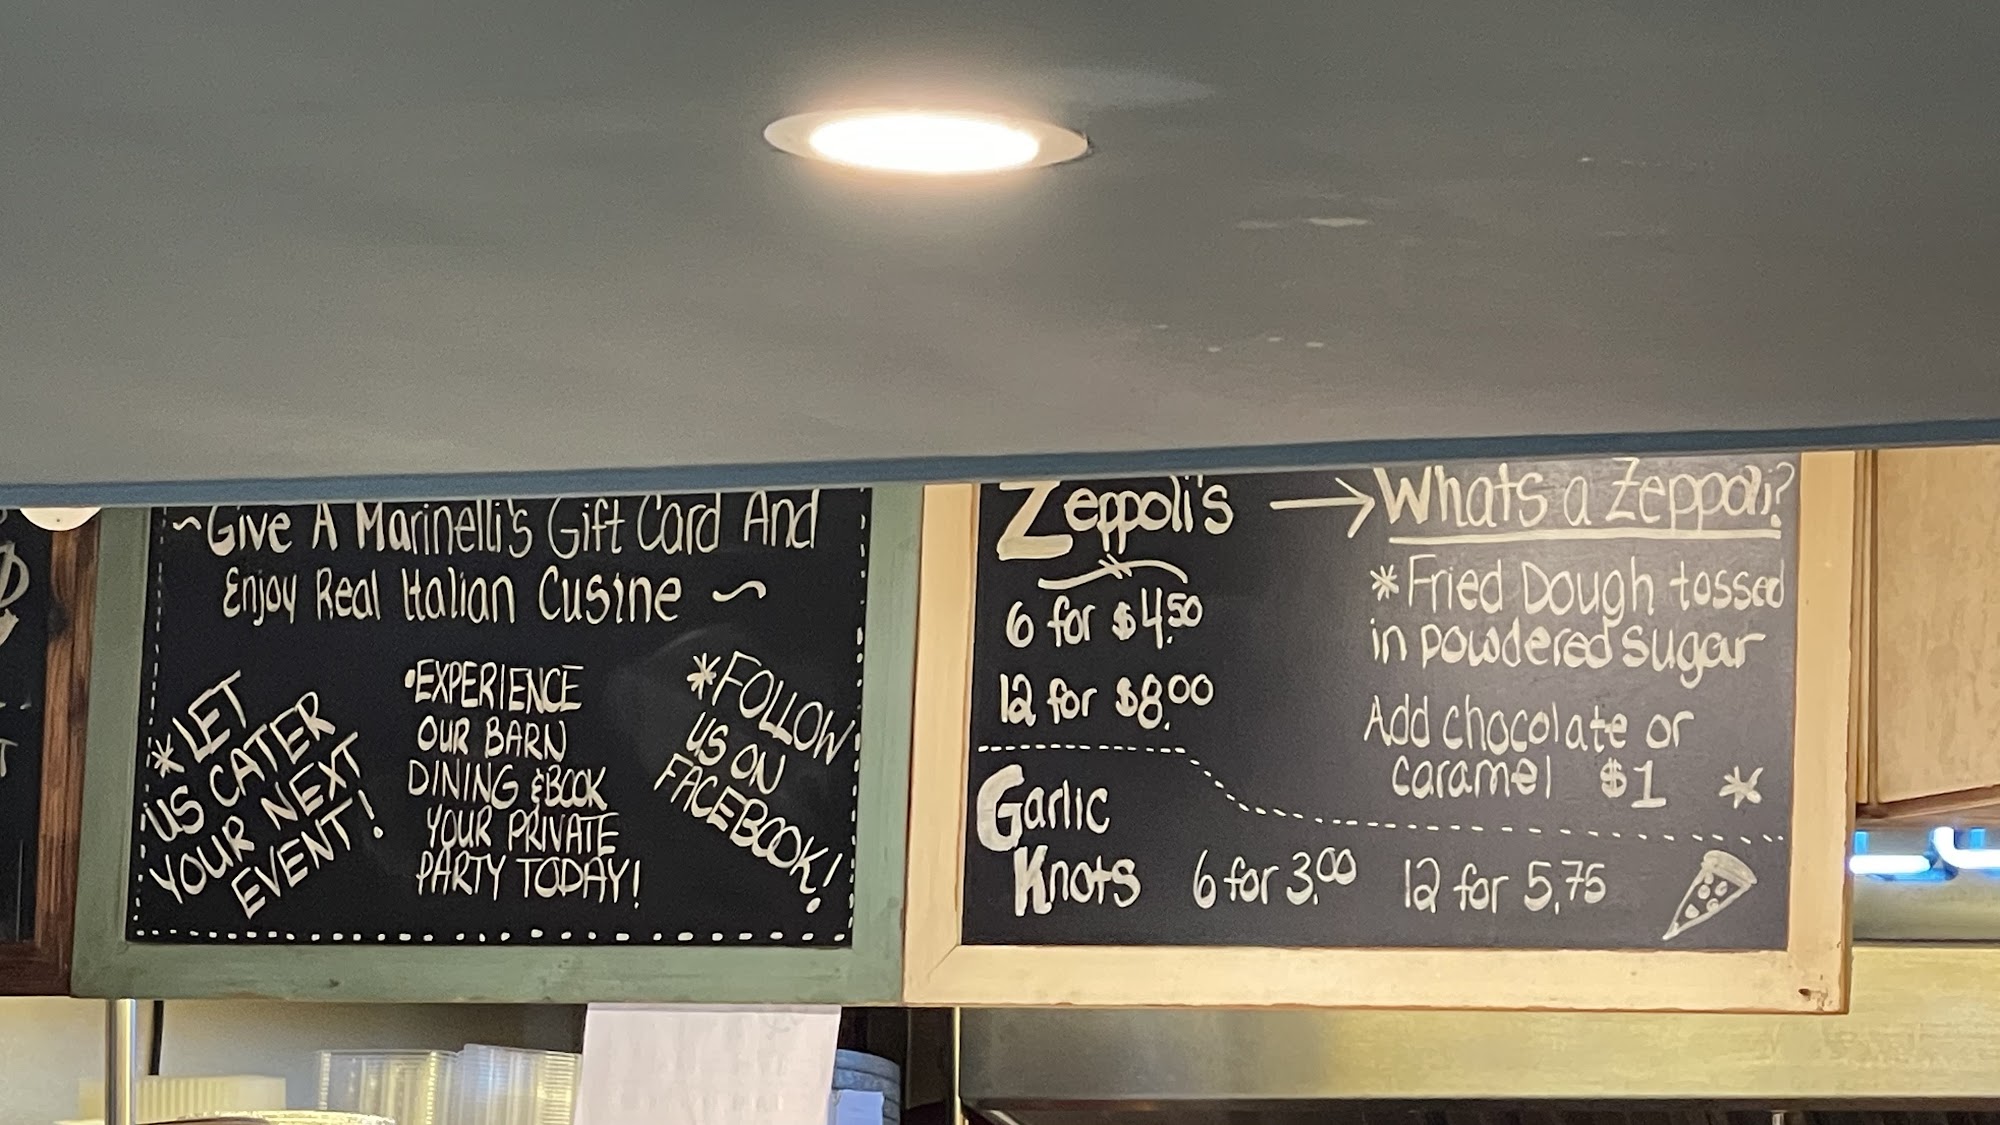 ~Give A Marinelli's Gift Card And
Enjoy Real Italian Cusine ~
* LET
US CATER
YOUR NEXT
EVENT!
•EXPERIENCE
OUR BARN
DINING & BOOK
YOUR PRIVATE
PARTY TODAY!
*FOLLOW
US ON
FACEBOOK!
Zeppoli's → Whats a Zeppoli?
6 for $4.50
12 for $8.00
* Fried Dough tossed
in powdered sugar
Add chocolate or
caramel $1 *
Garlic
Knots 6 for 3.00 12 for 5.75